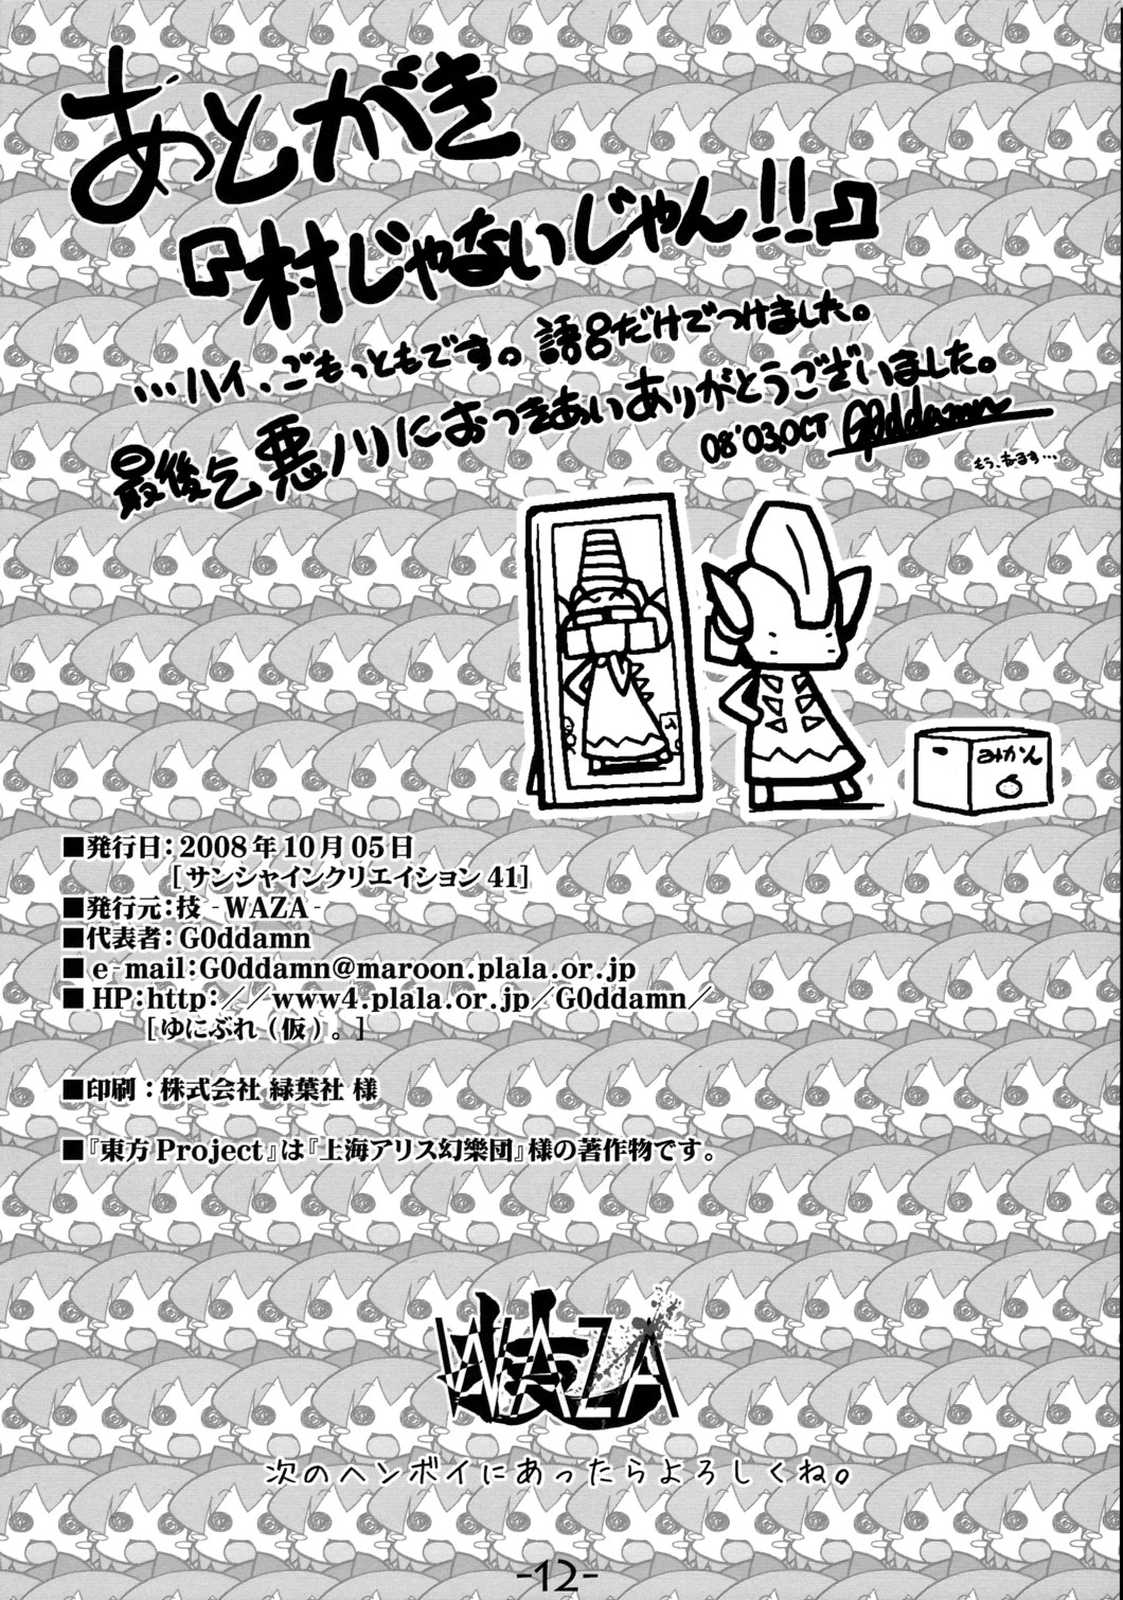 あとがき
『村じゃないじゃん!!』
…ハイ、ごもっともです。語呂だけでつけました。
最後迄悪ノリにおつきあいありがとうございました。
08'03,OCT G0ddamn
もう、あるす…
みかん
■発行日：2008年10月05日
［サンシャインクリエイション41］
■発行元：技 - WAZA -
■代表者：G0ddamn
■ e-mail:G0ddamn@maroon.plala.or.jp
■ HP:http:／／www4.plala.or.jp／G0ddamn／
［ゆにぶれ（仮）。］
■印刷：株式会社 緑葉社 様
■『東方Project』は『上海アリス幻樂団』様の著作物です。
WAZA
次のヘンボイにあったらよろしくね。
-12-